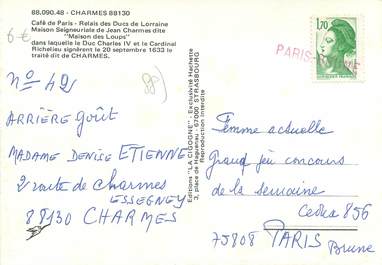 88.090.48 - CHARMES 88130
Café de Paris - Relais des Ducs de Lorraine
Maison Seigneuriale de Jean Charmes dite
"Maison des Loups"
dans laquelle le Duc Charles IV et le Cardinal
Richelieu signèrent le 20 septembre 1633 le
traité dit de CHARMES.
6€
88)
N° 42
ARRIÈRE goût
MADAME DENISE ETIENNE
2 route de Charmes
ESSEGNEY
88130 CHARMES
Editions "LA CIGOGNE" - Exclusivité Hachette
3, place de Haguenau - 67000 STRASBOURG
Reproduction interdite
1,70
PARIS
Femme actuelle
Grand jeu concours
de la semaine
Cedex 856
75808 PARIS
Brune